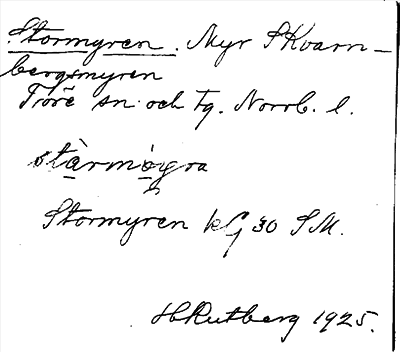 Stormyren. Myr S Kvarn-
bergsmyren
Töre sn. och tg. Norrb. l.
Stormyren kG 30 SM.
H Rutberg 1925.